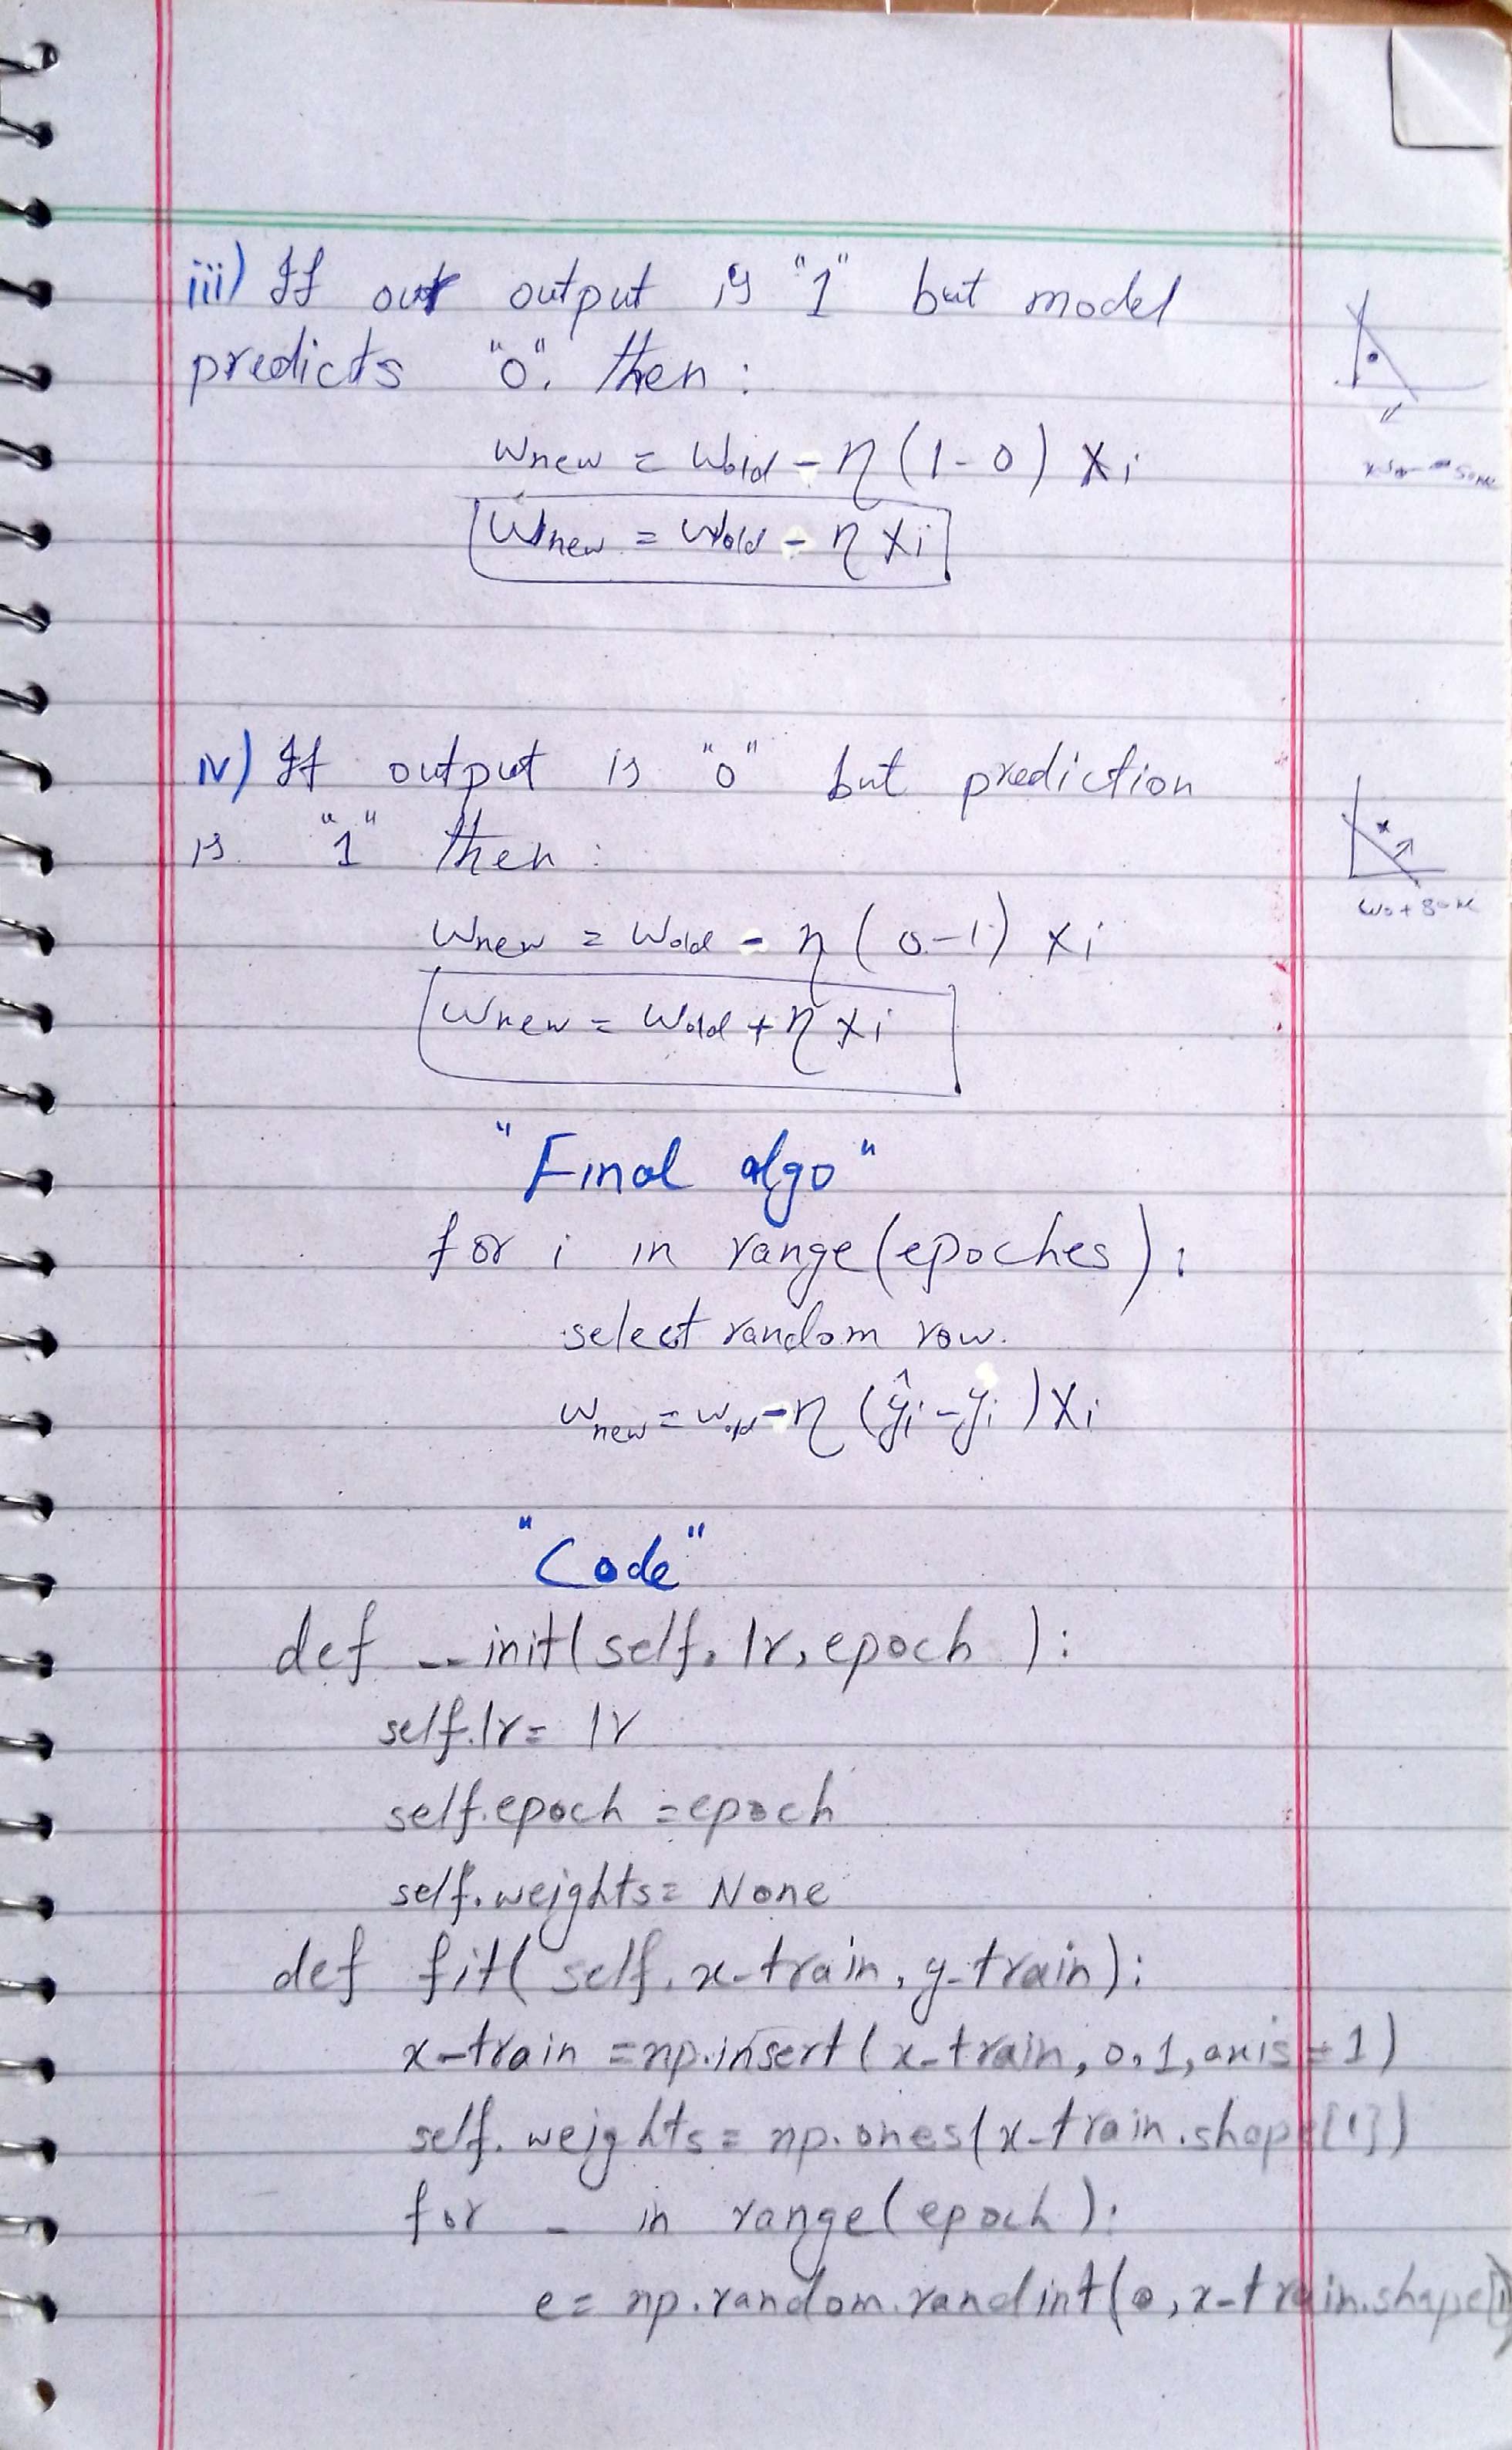 iii) If our output is "1" but model
predicts "0". then :
Wnew = Wold - η (1-0) Xi
Wnew = Wold - η Xi
iv) If output is "0" but prediction
is "1" then :
Wnew = Wold - η (0-1) Xi
Wnew = Wold + η Xi
Wo + some
"Final algo"
for i in range(epoches):
select random row.
Wnew = Wold - η (ŷi - yi) Xi
"Code"
def __init(self, lr, epoch ):
self.lr = lr
self.epoch = epoch
self.weights = None
def fit( self, x-train, y-train):
x-train = np.insert(x-train, 0, 1, axis=1)
self.weights = np.ones(x-train.shape[1])
for _ in range(epoch):
e= np.random.randint(0, x-train.shape[